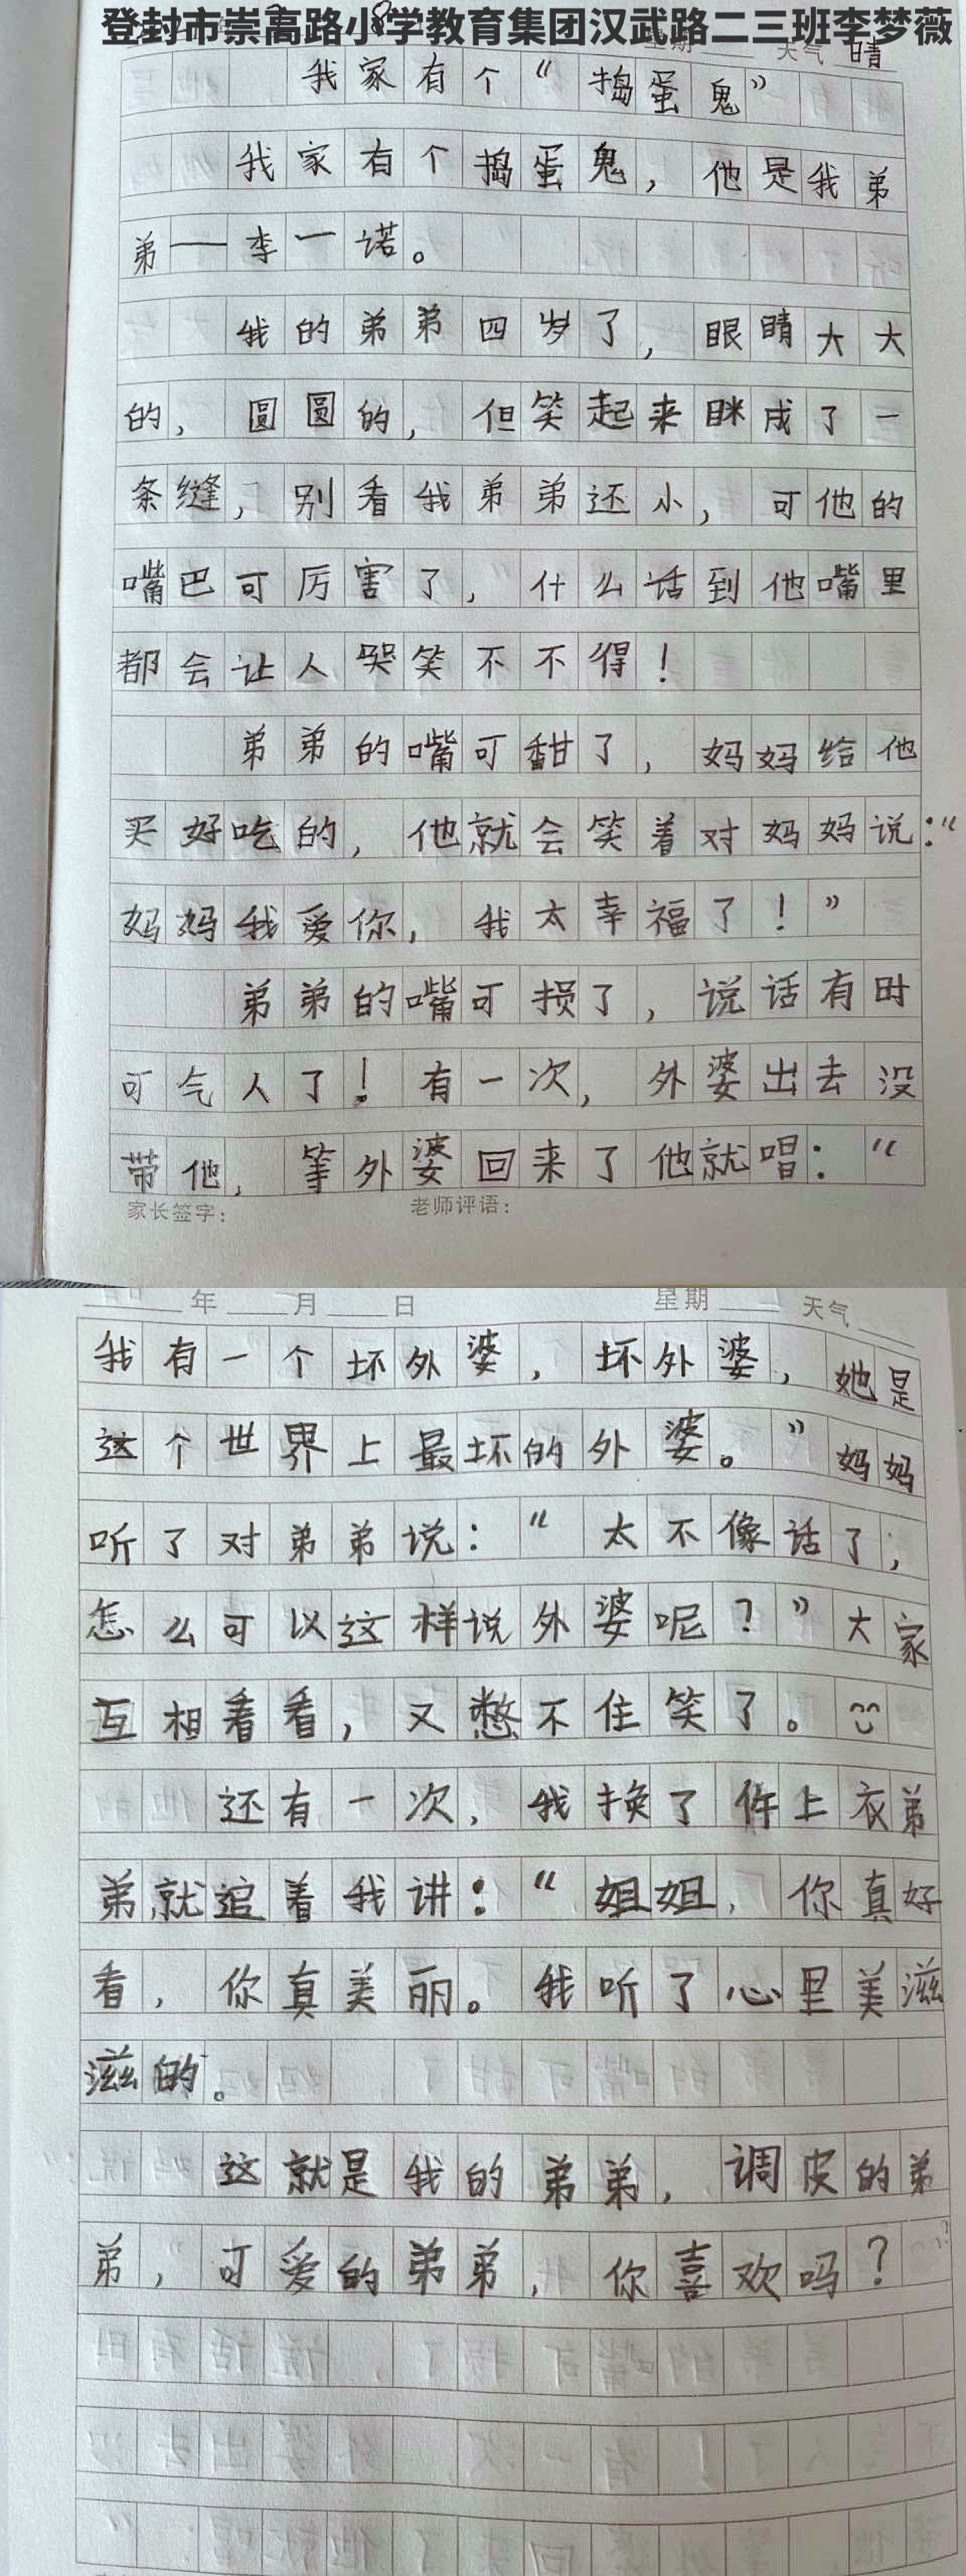 登封市崇高路小学教育集团汉武路二三班李梦薇
星期 天气 晴
我家有个“捣蛋鬼”
我家有个捣蛋鬼，他是我弟
弟——李一诺。
我的弟弟四岁了，眼睛大大
的，圆圆的，但笑起来眯成了一
条缝，别看我弟弟还小，可他的
嘴巴可厉害了，什么话到他嘴里
都会让人哭笑不不得！
弟弟的嘴可甜了，妈妈给他
买好吃的，他就会笑着对妈妈说：“
妈妈我爱你，我太幸福了！”
弟弟的嘴可损了，说话有时
可气人了！有一次，外婆出去没
带他，等外婆回来了他就唱：“
家长签字： 老师评语：
年 月 日 星期 天气
我有一个坏外婆，坏外婆，她是
这个世界上最坏的外婆。”妈妈
听了对弟弟说：“太不像话了，
怎么可以这样说外婆呢？”大家
互相看看，又憋不住笑了。
还有一次，我换了件上衣弟
弟就追着我讲：“姐姐，你真好
看，你真美丽。我听了心里美滋
滋的。
这就是我的弟弟，调皮的弟
弟，可爱的弟弟，你喜欢吗？